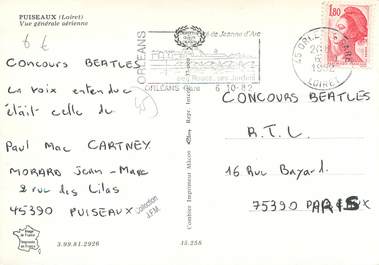 PUISEAUX (Loiret)
Vue générale aérienne
6 €
CONCOURS BEATLES
La voix entendue
était celle de
Paul Mac CARTNEY
MORARD Jean-Marc
8 rue des Lilas
45390 PUISEAUX
Collection
J.F.M.
3.99.81.2926
15.258
Combier Imprimeur Mâcon
ORLÉANS
de Jeanne d'Arc
ses Roses, ses Jardins
ORLÉANS Gare 6.10.82
45 ORLEANS GARE
1982
LOIRET
1,80
CONCOURS BEATLES
R.T.L.
16 Rue Bayard
75390 PARIS